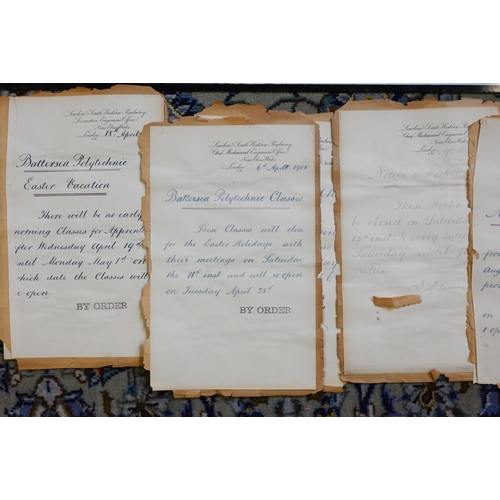 London & South Western Railway
Locomotive Engineer's Office
Nine Elms Works
London
18th April
Battersea Polytechnic
Easter Vacation
There will be no early
morning Classes for Apprent
after Wednesday April 19th
until Monday May 1st on
which date the Classes will
re-open
BY ORDER
London & South Western Railway
Chief Mechanical Engineer's Office
Nine Elms Works
London
6th April 1908
Battersea Polytechnic Classes
These Classes will close
for the Easter Holidays with
their meetings on Saturday
the 11th inst and will re-open
on Tuesday April 28th
BY ORDER
London & South Western Railway
Chief Mechanical Engineer's Office
Nine Elms Works
London
Notice to Workmen
These Works
be closed on Saturday
inst & every
Saturday until
notice
Aug
pro
on